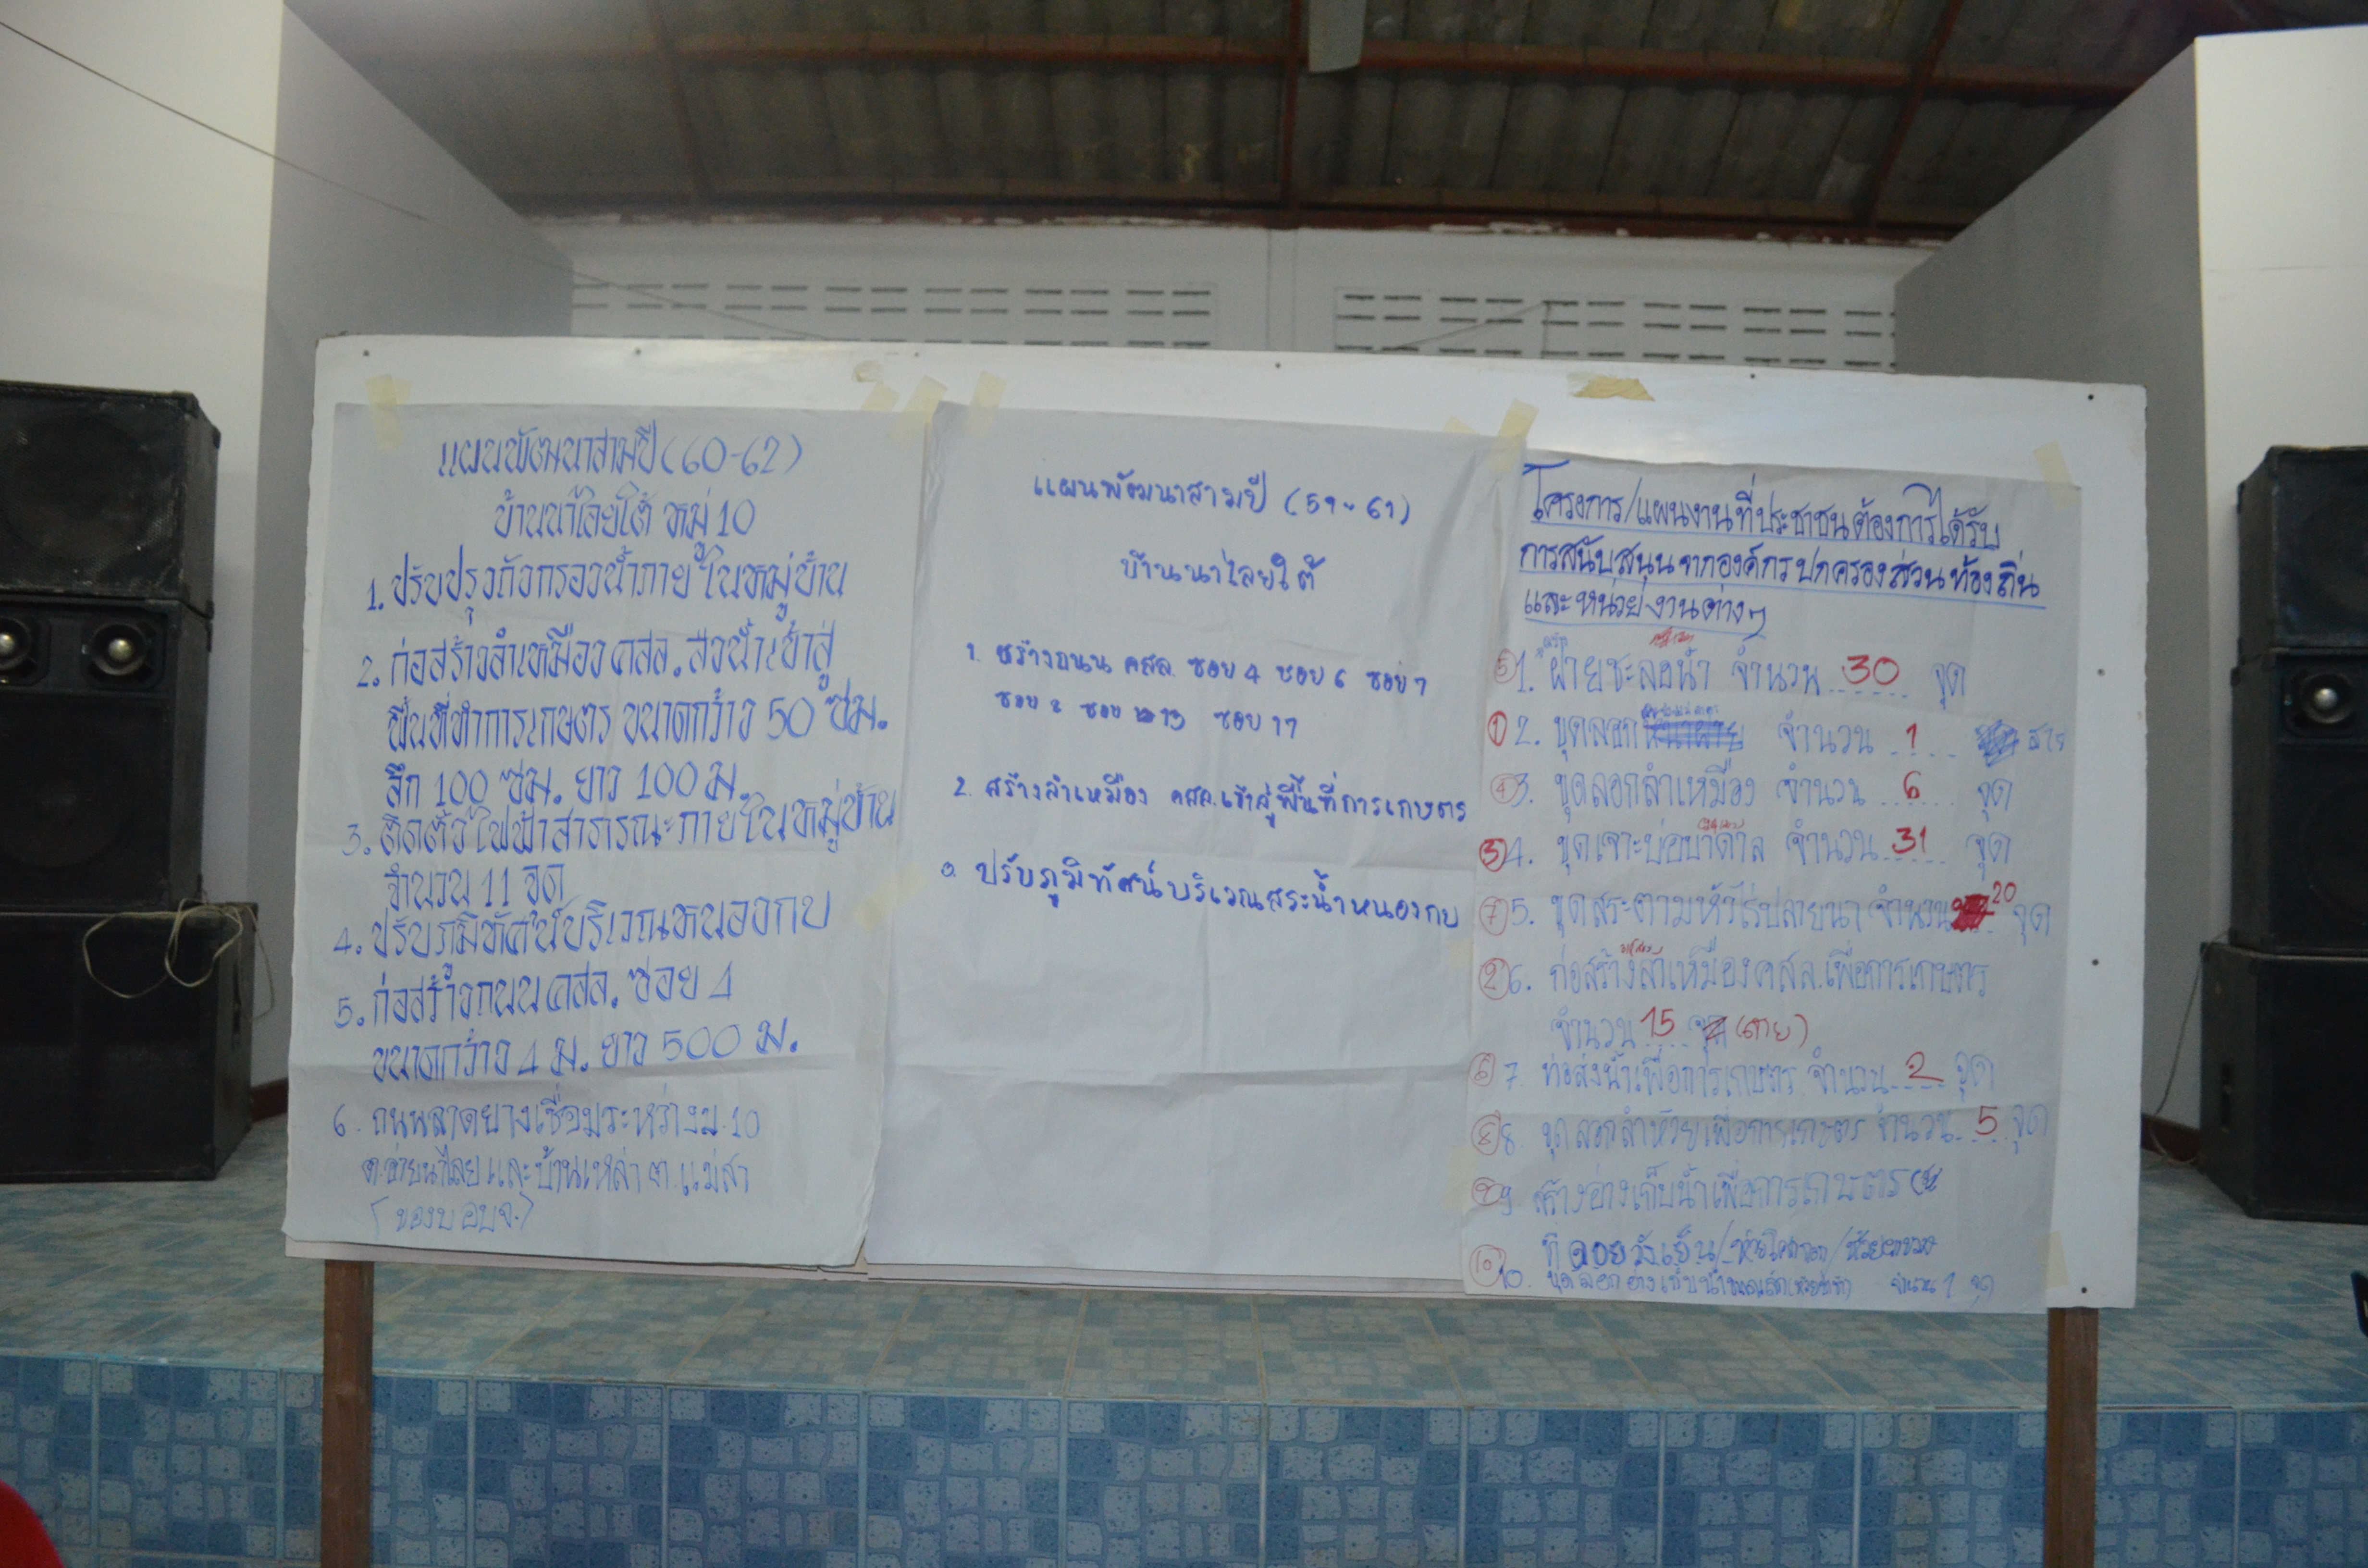 แผนพัฒนาสามปี (60-62)
บ้านนาไลยใต้ หมู่ 10
1. ปรับปรุงถังกรองน้ำภายในหมู่บ้าน
2. ก่อสร้างลำเหมือง คสล. ส่งน้ำเข้าสู่
พื้นที่ทำการเกษตร ขนาดกว้าง 50 ซม.
ลึก 100 ซม. ยาว 100 ม.
3. ติดตั้งไฟฟ้าสาธารณะภายในหมู่บ้าน
จำนวน 11 จุด
4. ปรับภูมิทัศน์บริเวณหนองกบ
5. ก่อสร้างถนน คสล. ซอย 4
ขนาดกว้าง 4 ม. ยาว 500 ม.
6. ถนนลาดยางเชื่อมระหว่าง ม.10
ต.อ่ายนาไลย และบ้านเหล่า ต.แม่สา
(ของบ อบจ.)
แผนพัฒนาสามปี (59-61)
บ้านนาไลยใต้
1. สร้างถนน คสล. ซอย 4 ซอย 6 ซอย 7
ซอย 2 ซอย 13 ซอย 17
2. สร้างลำเหมือง คสล. เข้าสู่พื้นที่การเกษตร
ปรับภูมิทัศน์บริเวณสระน้ำหนองกบ
โครงการ/แผนงานที่ประชาชนต้องการได้รับ
การสนับสนุนจากองค์กรปกครองส่วนท้องถิ่น
และหน่วยงานต่างๆ
⑤ 1. ฝายชะลอน้ำ จำนวน 30 จุด
① 2. ขุดลอก จำนวน 1
④ 3. ขุดลอกลำเหมือง จำนวน 6 จุด
③ 4. ขุดเจาะบ่อบาดาล จำนวน 31 จุด
⑦ 5. ขุดสระตามหัวไร่ปลายนา จำนวน 20 จุด
② 6. ก่อสร้างลำเหมือง คสล. เพื่อการเกษตร
จำนวน 15 (สาย)
⑥ 7. ท่อส่งน้ำเพื่อการเกษตร จำนวน 2 จุด
⑧ 8. ขุดลอกลำห้วยเพื่อการเกษตร จำนวน 5 จุด
⑨ 9. สร้างอ่างเก็บน้ำเพื่อการเกษตร
ที่ดอยวังเย็น/
⑩ 10. ขุดลอกอ่างเก็บน้ำ จำนวน 1 จุด